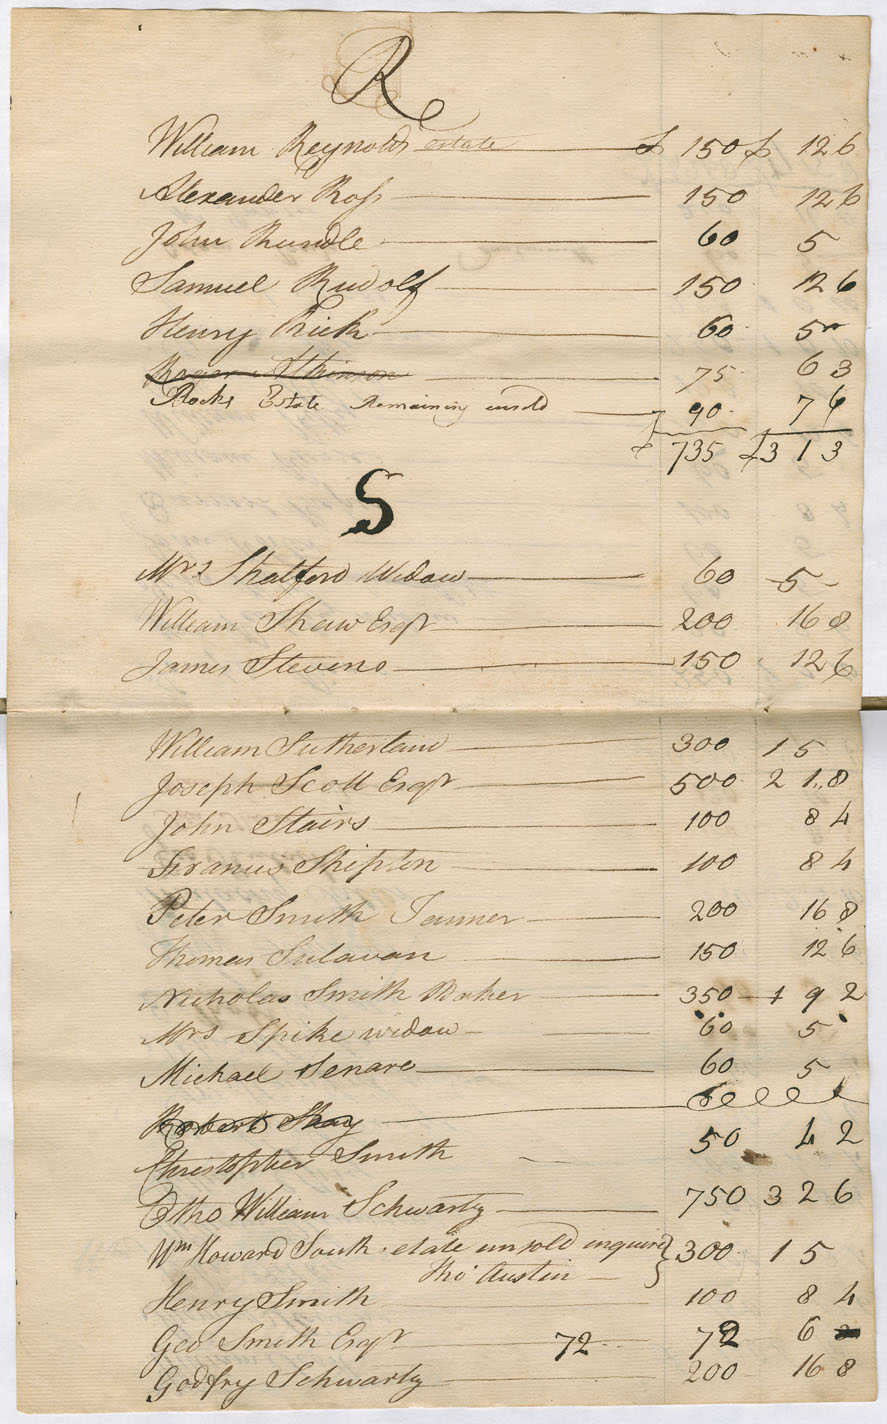 R
William Reynolds estate £ 150 £ 12 6
Alexander Ross 150 12 6
John Rundle 60 5
Samuel Rudolf 150 12 6
Henry Rick 60 5
Roger Atkinson 75 6 3
Rocks Estate Remaining unsold 90 7 6
£ 735 £3 1 3
S
Mrs Shatford Widow 60 5
William Shaw Esqr 200 16 8
James Stevens 150 12 6
William Sutherland 300 1 5
Joseph Scott Esqr 500 2 1 8
John Stairs 100 8 4
Francis Shipton 100 8 4
Peter Smith Tanner 200 16 8
Thomas Sulavan 150 12 6
Nicholas Smith Baker 350 1 9 2
Mrs Spike widow 60 5
Michael Senare 60 5
Robert Shay 60
Christopher Smith 50 4 2
Otho William Schwartz 750 3 2 6
Wm Howard South estate unsold inquire 300 1 5
Tho Austin
Henry Smith 100 8 4
Geo Smith Esqr 72 72 6
Godfry Schwartz 200 16 8